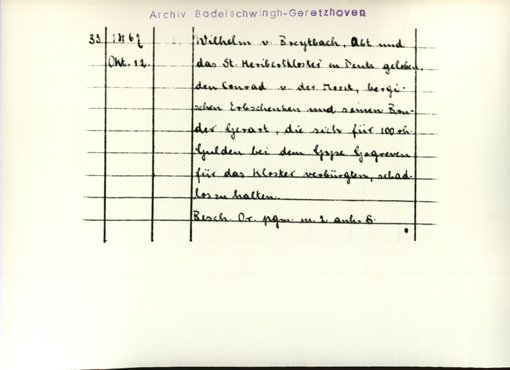 Archiv Bodelschwingh-Geretzhoven
33 1467 Wilhelm v. Breytbach, Abt und
Okt. 12 das St. Heribertkloster in Deutz geloben,
den Conrad v. der Horst, bergi-
schen Erbschenken und seinen Bru-
der Gerart, die sich für 100 rh
Gulden bei dem Gogreven
für das Kloster verbürgten, schad-
los zu halten.
Besch. Or. pgm. m. 2 anh. S.